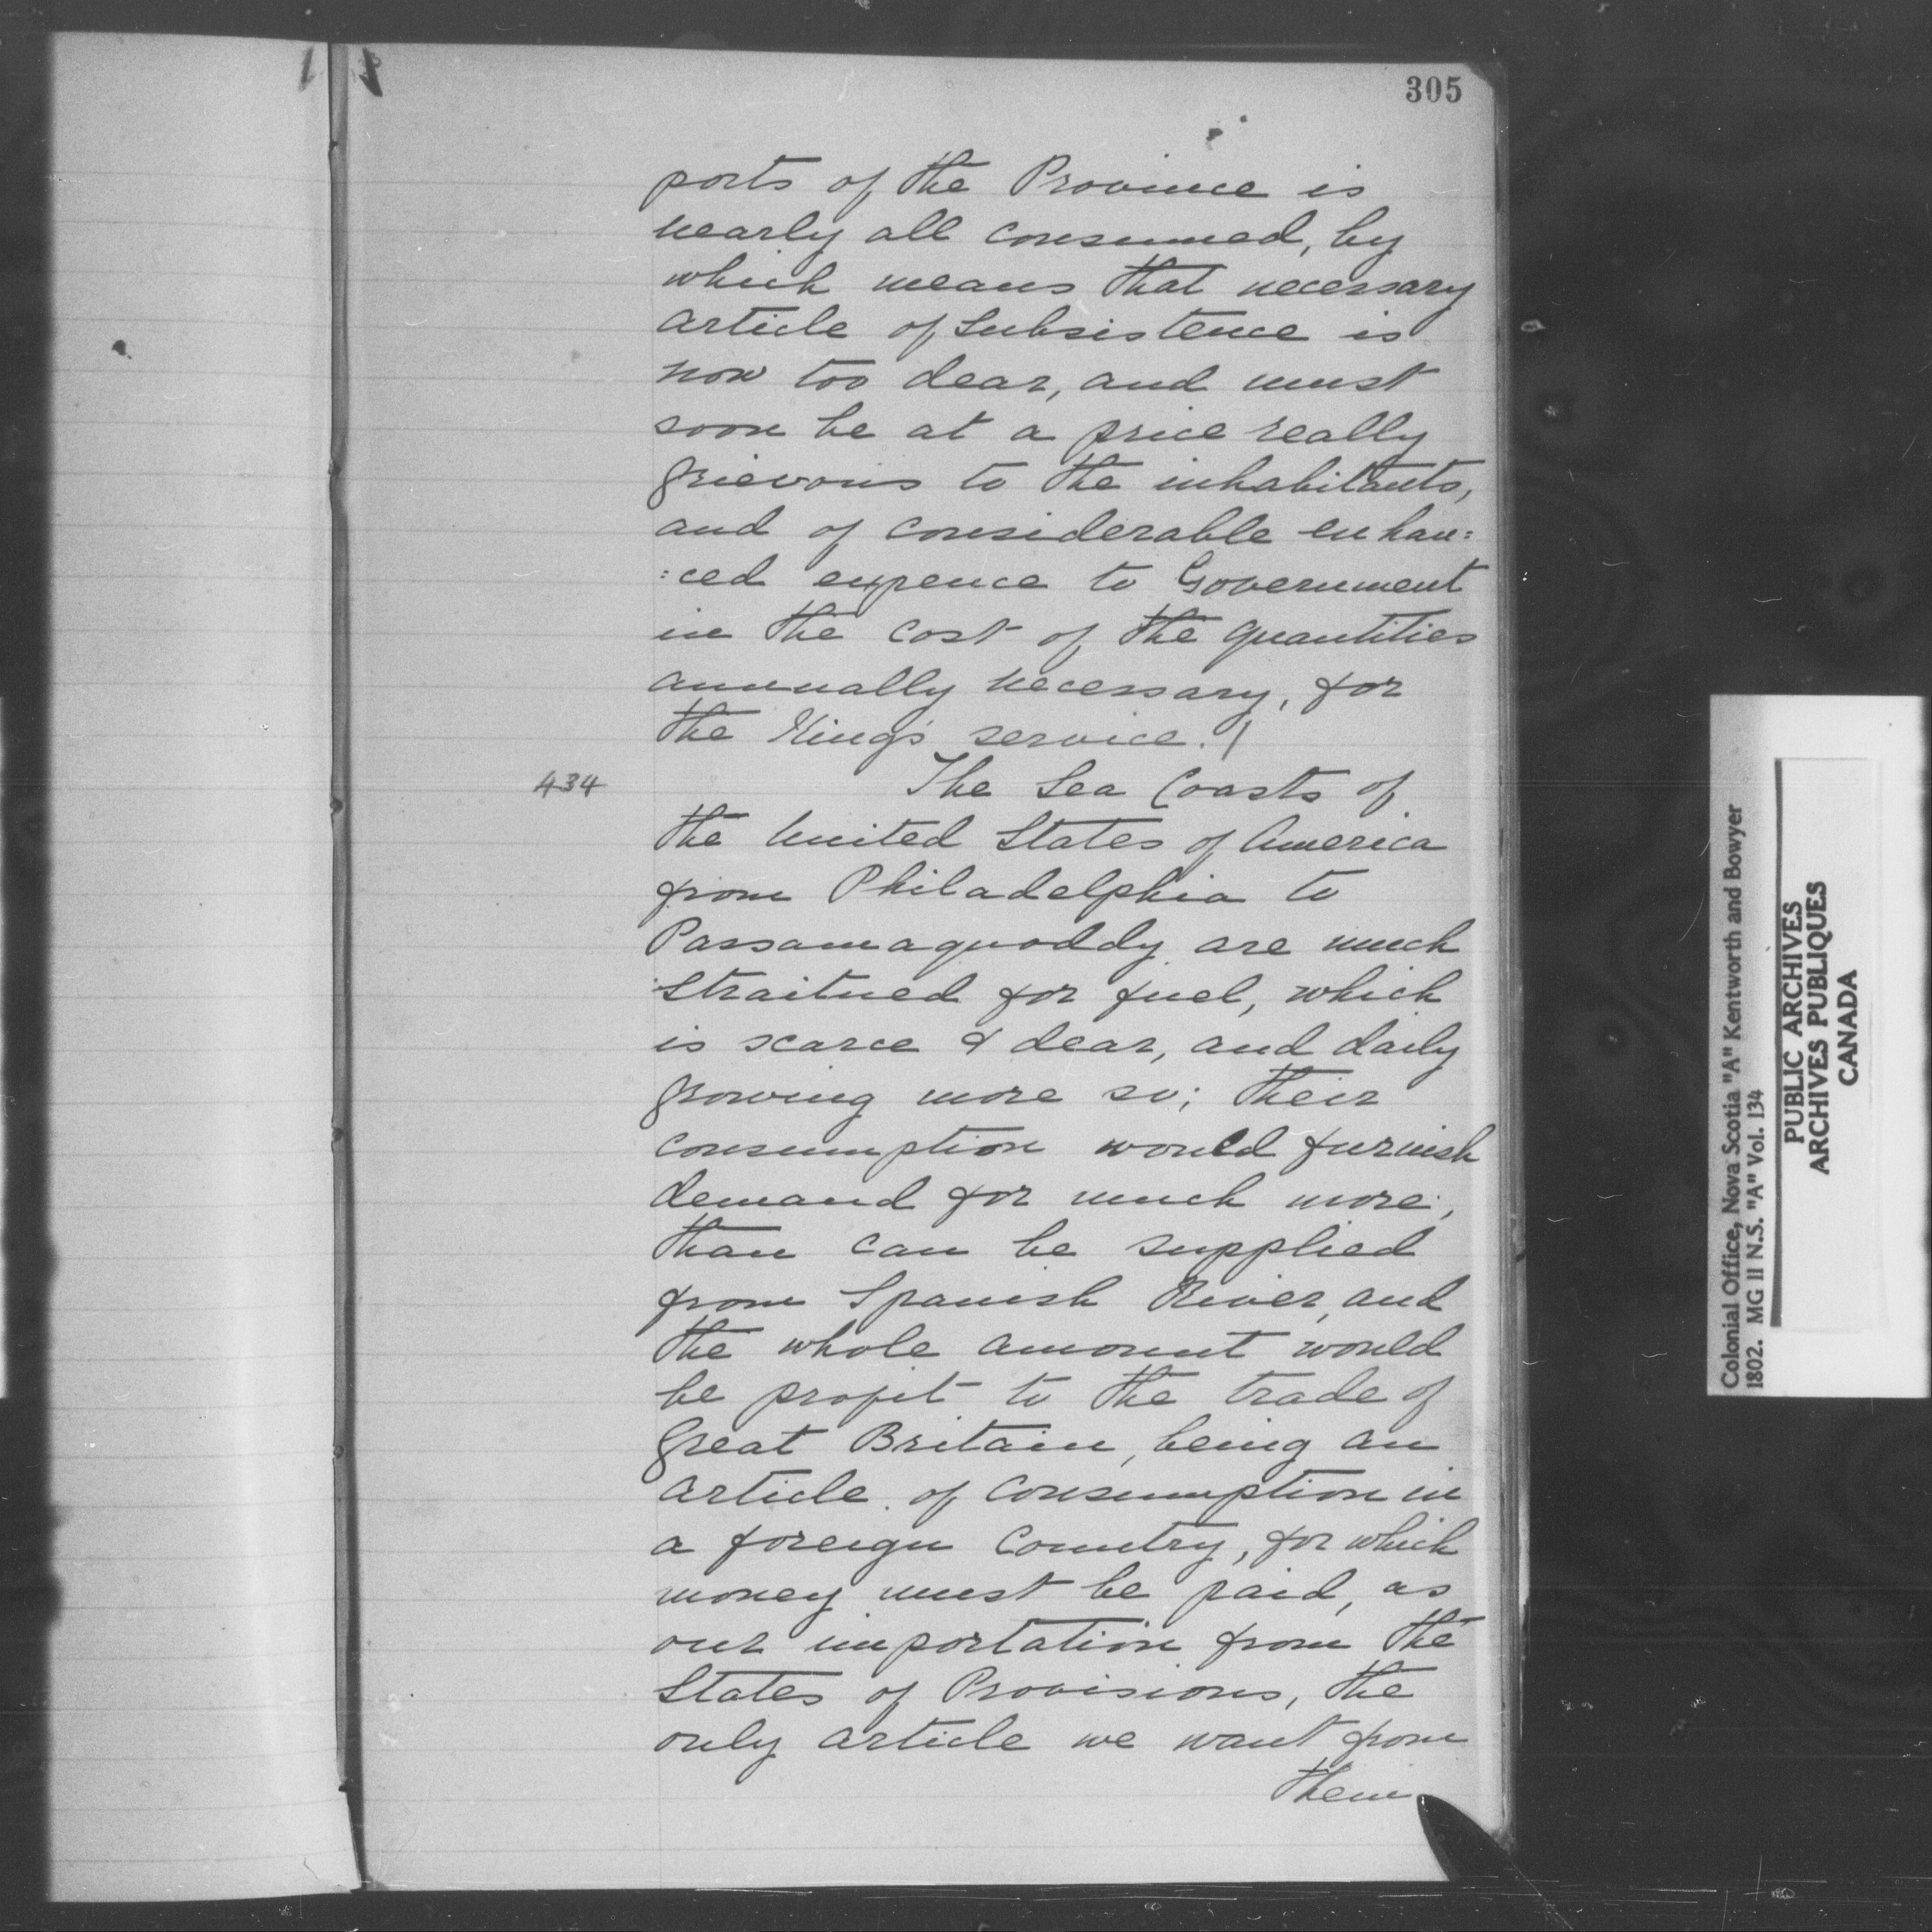 305
ports of the Province is
nearly all consumed, by
which means that necessary
article of subsistence is
now too dear, and must
soon be at a price really
grievous to the inhabitants,
and of considerable enhan:
:ced expence to Government
in the cost of the quantities
annually necessary, for
the King's service./
434
The Sea Coasts of
the United States of America
from Philadelphia to
Passamaquoddy are much
straitned for fuel, which
is scarce & dear, and daily
growing more so; their
consumption would furnish
demand for much more,
than can be supplied
from Spanish River, and
the whole amount would
be profit to the trade of
Great Britain, being an
article of consumption in
a foreign Country, for which
money must be paid, as
our importation from the
States of Provisions, the
only article we want from
them
Colonial Office, Nova Scotia "A" Kentworth and Bowyer
1802. MG 11 N.S. "A" Vol. 134
PUBLIC ARCHIVES
ARCHIVES PUBLIQUES
CANADA